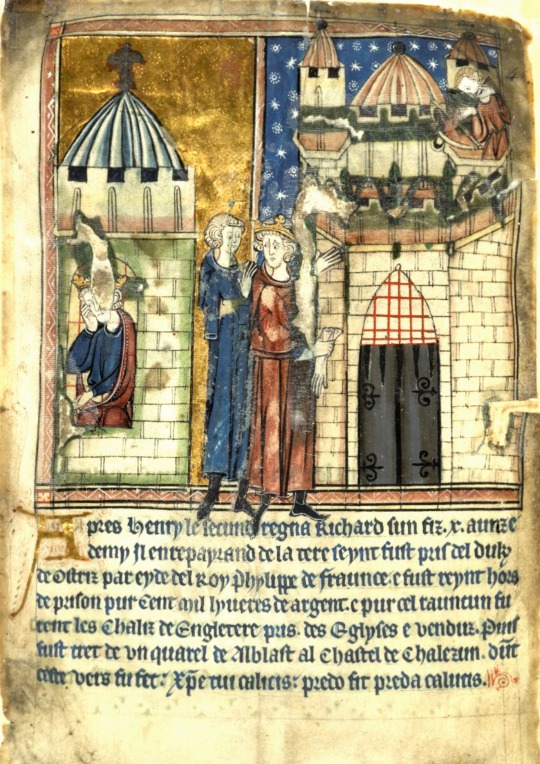 Apres Henry le secund regna Richard sun fiz .x. aunz e
demy Il en repayrand de la tere seynt fust pris del duk
de Ostriz par eyde del Roy Phylippe de fraunce. e fust reynt hors
de prison pur Cent mil lyueres de argent. e pur cel raunsun fu
rent les Chaliz de Engletere pris. des Eglyses e venduz. Puis
fust tret de vn quarel de Alblast al Chastel de Chalezun. dunt
ceste vers fu fet: Xpe tui calicis: predo fit preda calucis.